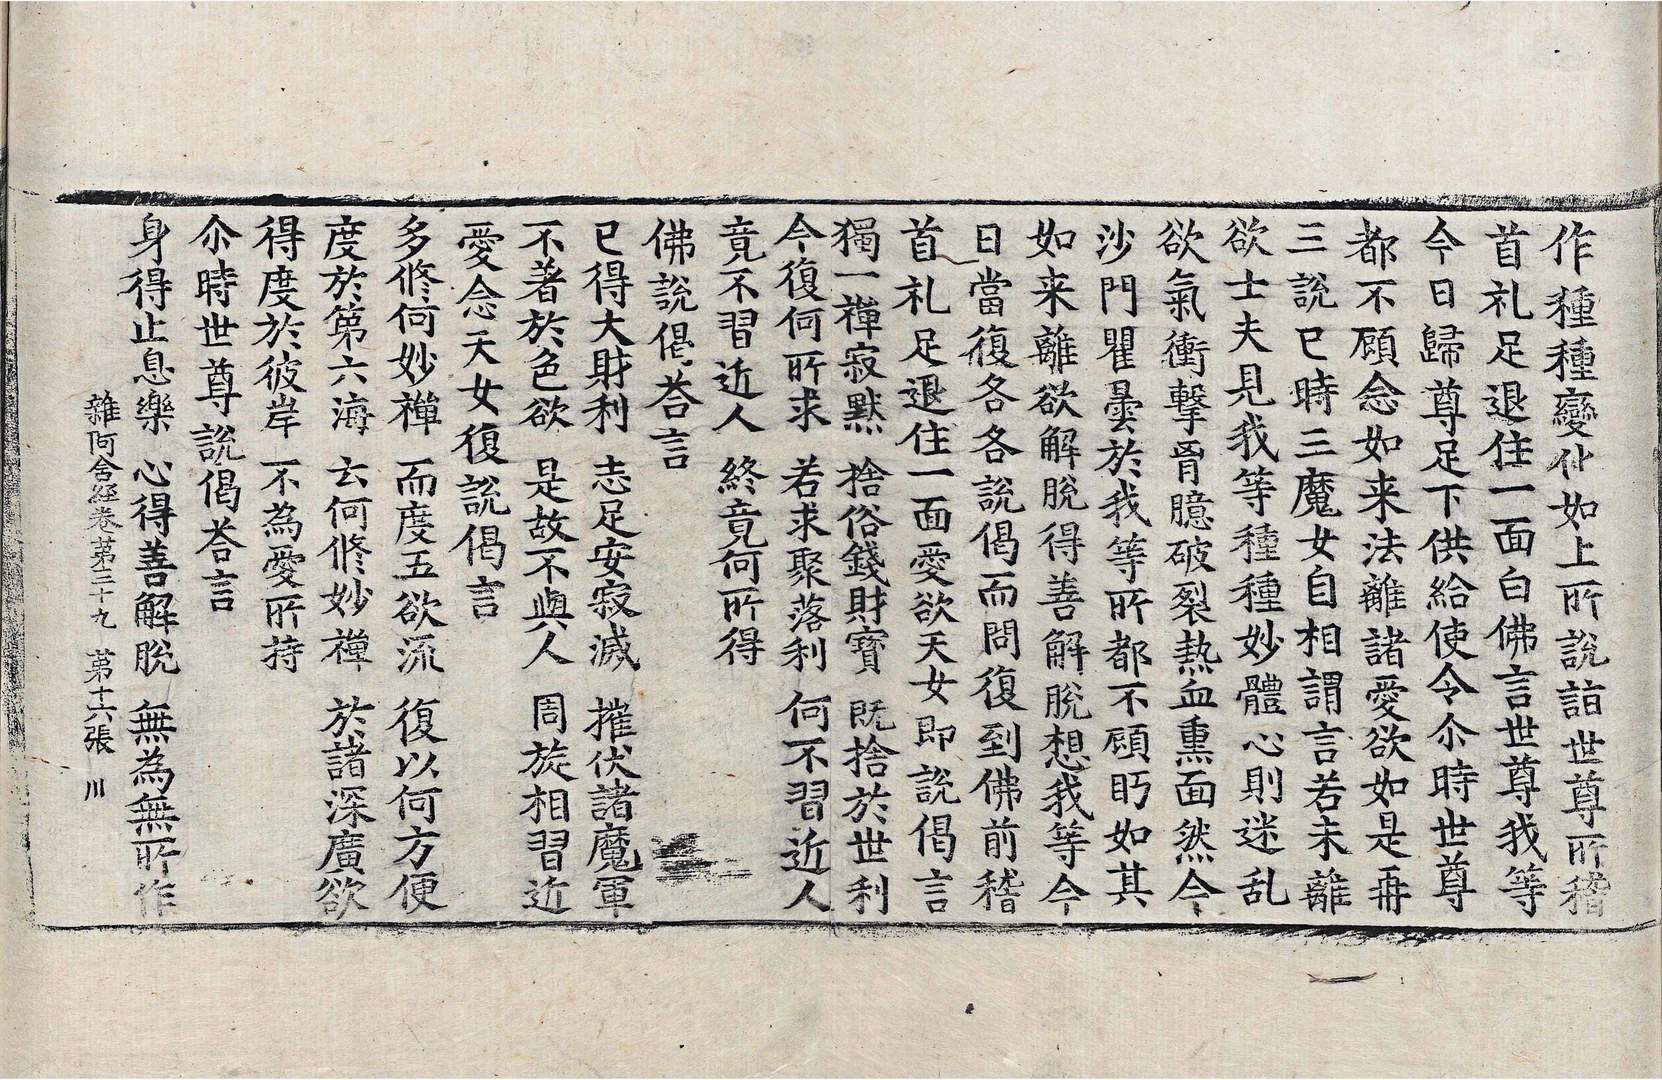 作種種變化如上所說詣世尊所稽
首礼足退住一面白佛言世尊我等
今日歸尊足下供給使令尒時世尊
都不顧念如来法離諸愛欲如是再
三說已時三魔女自相謂言若未離
欲士夫見我等種種妙體心則迷乱
欲氣衝擊胷臆破裂熱血熏面然今
沙門瞿曇於我等所都不顧眄如其
如来離欲解脫得善解脫想我等今
日當復各各說偈而問復到佛前稽
首礼足退住一面愛欲天女即說偈言
獨一禪寂默 捨俗錢財寶 既捨於世利
今復何所求 若求聚落利 何不習近人
竟不習近人 終竟何所得
佛說偈荅言
已得大財利 志足安寂滅 摧伏諸魔軍
不著於色欲 是故不與人 周旋相習近
愛念天女復說偈言
多修何妙禪 而度五欲流 復以何方便
度於第六海 云何修妙禪 於諸深廣欲
得度於彼岸 不為愛所持
尒時世尊說偈荅言
身得止息樂 心得善解脫 無為無所作
雜阿含經卷第三十九 第十六張 川